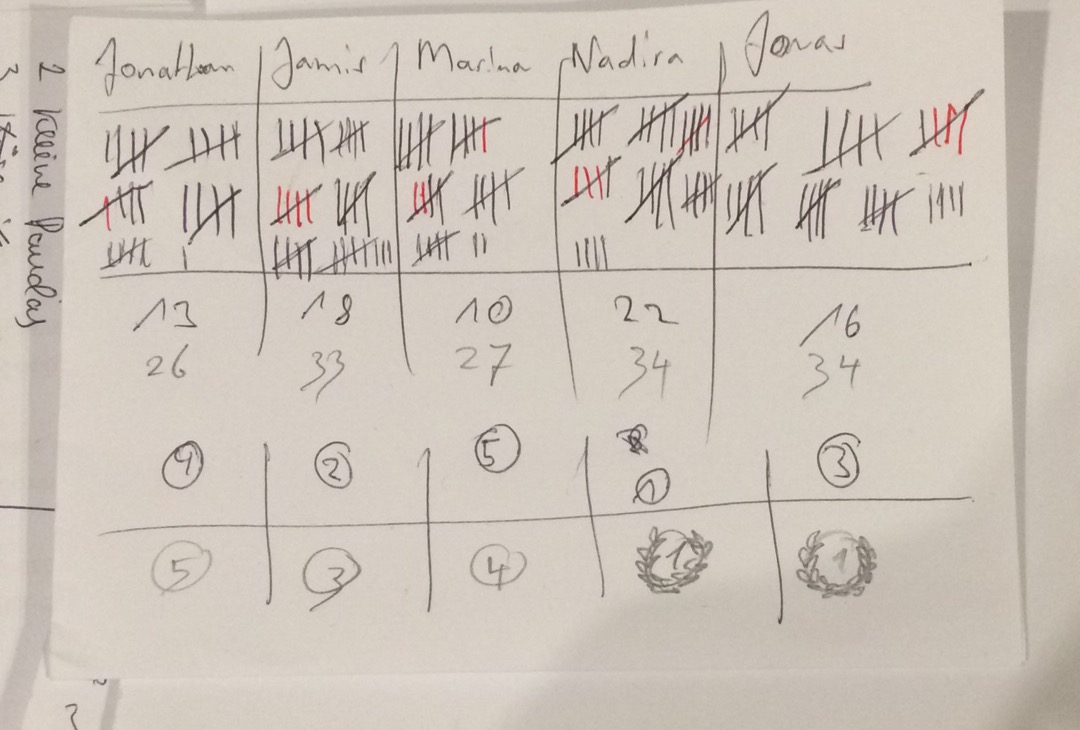 Jonathan Jamis Marina Nadira Jonas
13 18 10 22 16
26 33 27 34 34
4 2 5 1 3
5 3 4 1 1
2 kleine Pandas
3
3